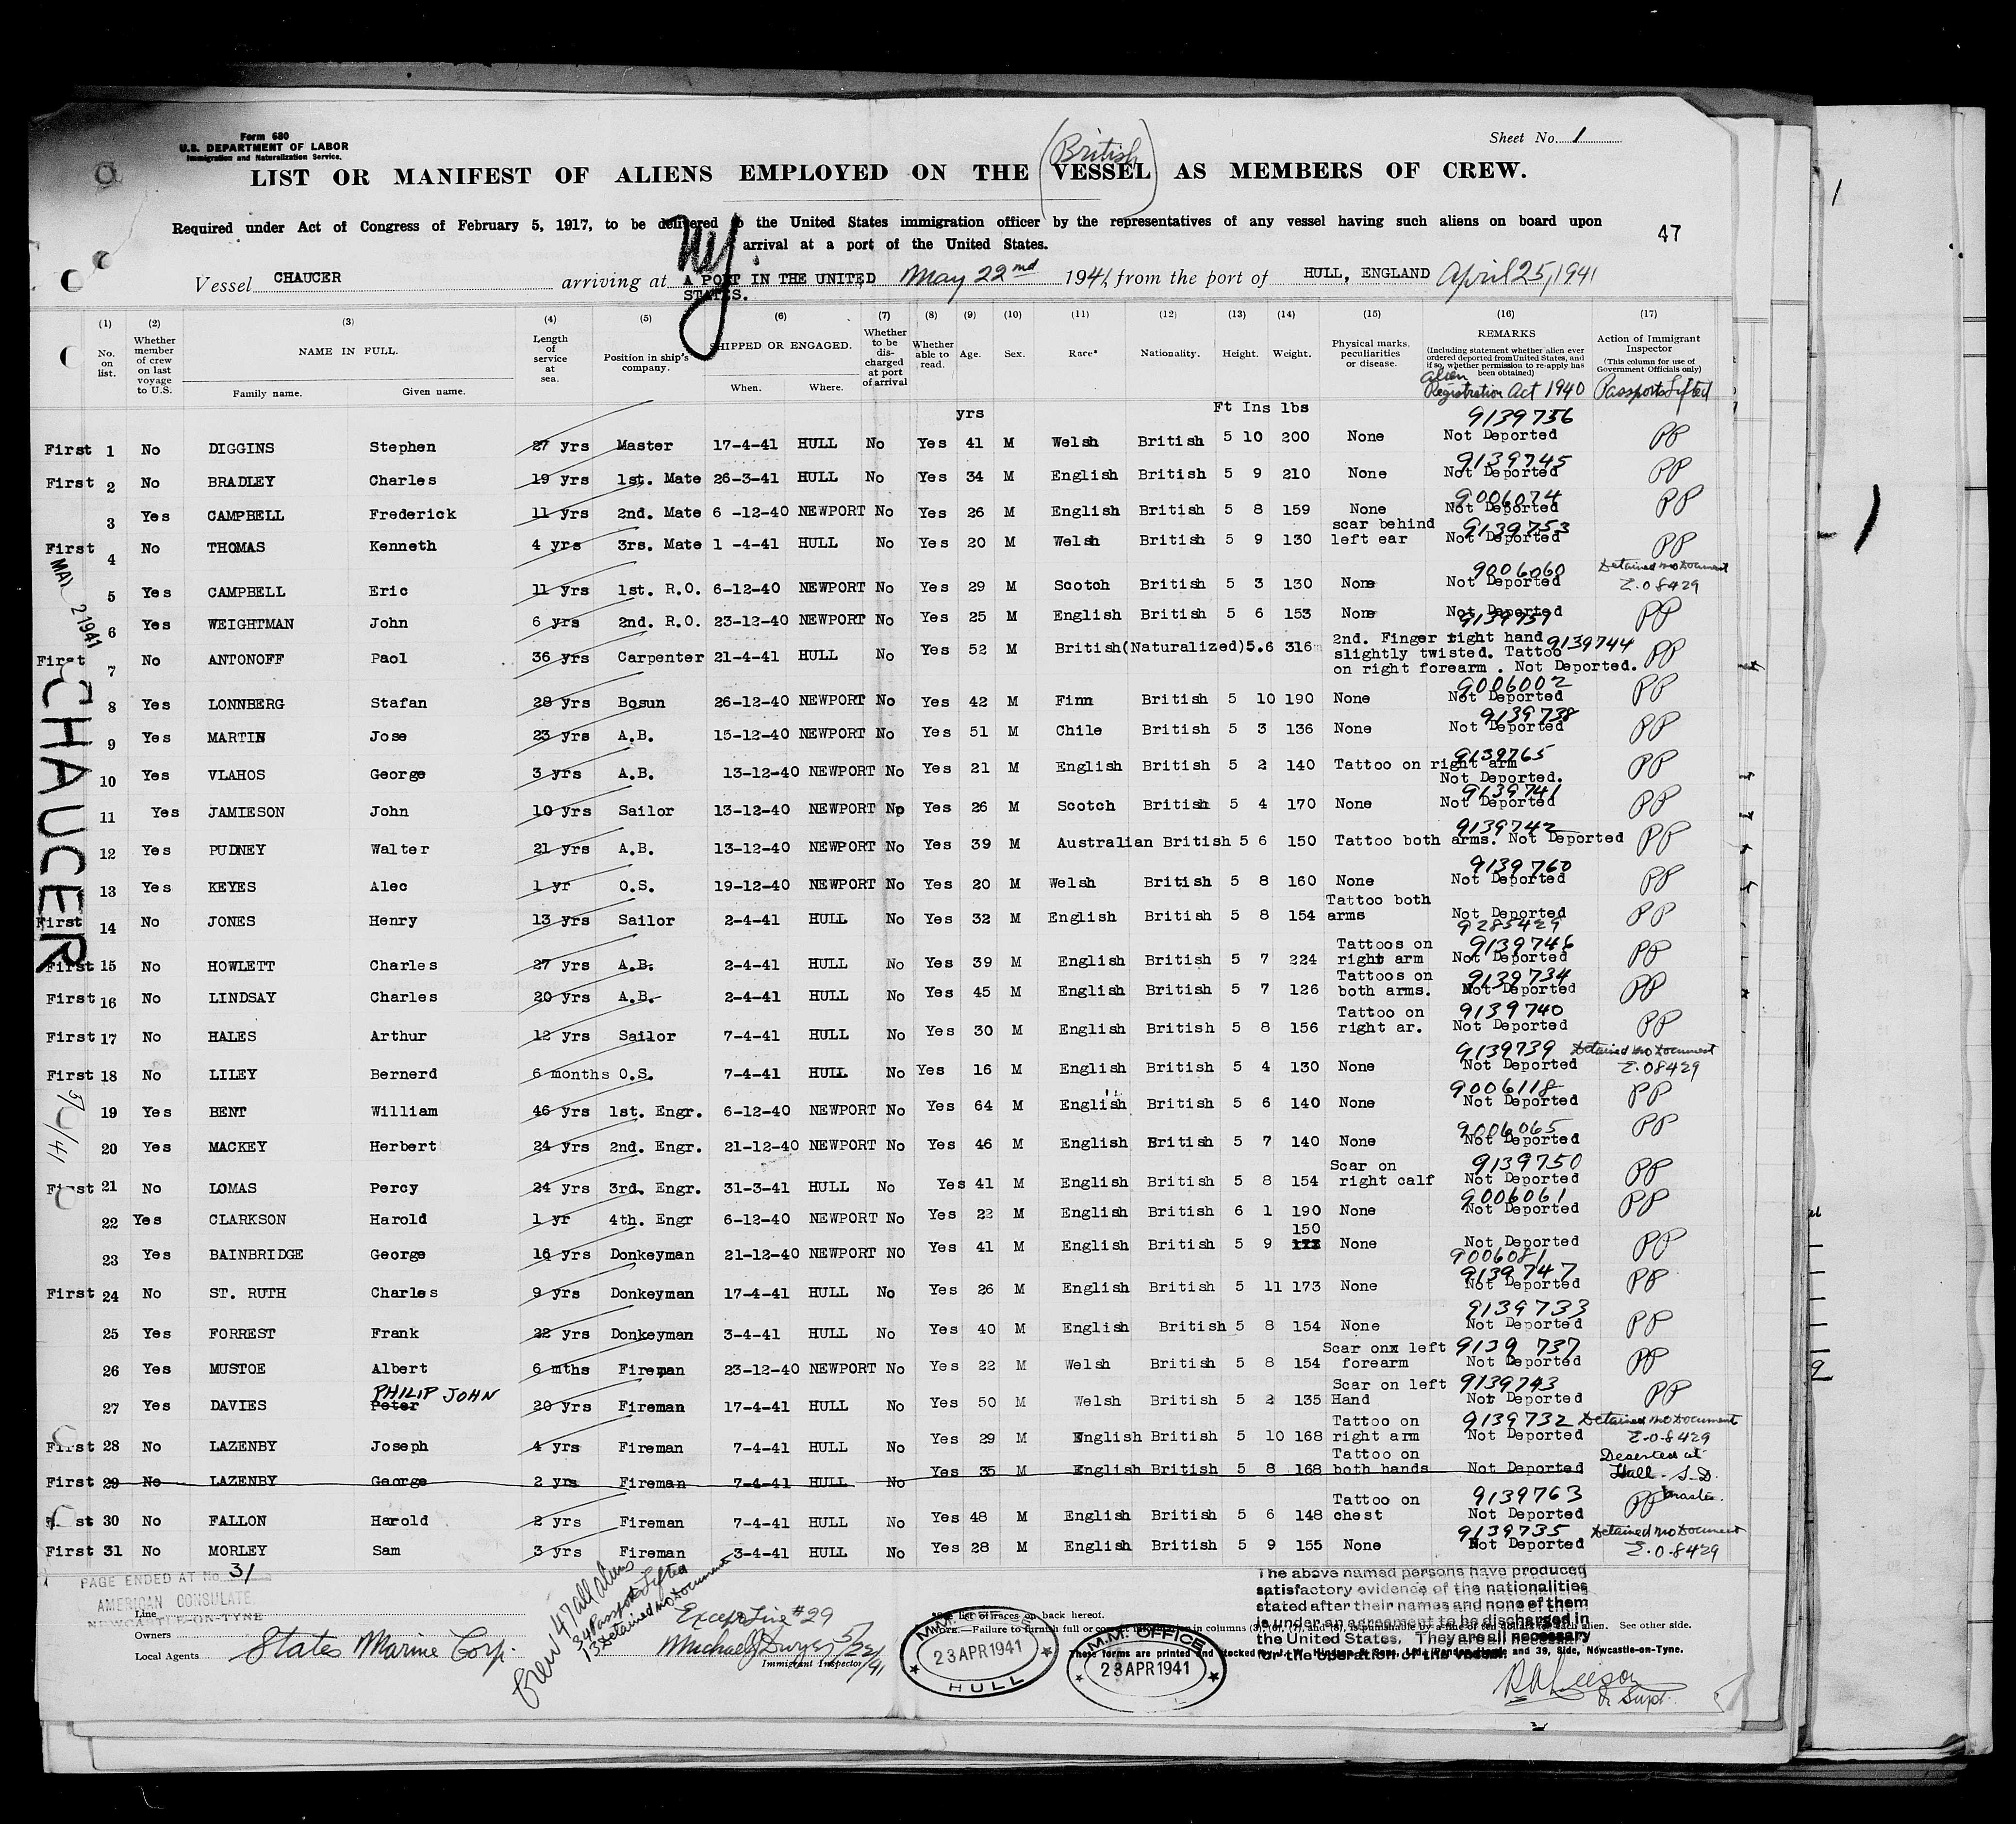 Form 680
U.S. DEPARTMENT OF LABOR
Immigration and Naturalization Service.
Sheet No. 1
(British)
LIST OR MANIFEST OF ALIENS EMPLOYED ON THE VESSEL AS MEMBERS OF CREW.
Required under Act of Congress of February 5, 1917, to be delivered to the United States immigration officer by the representatives of any vessel having such aliens on board upon
arrival at a port of the United States.
47
NY
Vessel CHAUCER arriving at A PORT IN THE UNITED STATES. May 22nd 1941, from the port of HULL, ENGLAND April 25, 1941
(1) (2) (3) (4) (5) (6) (7) (8) (9) (10) (11) (12) (13) (14) (15) (16) (17)
No. on list. Whether member of crew on last voyage to U.S. NAME IN FULL. Family name. Given name. Length of service at sea. Position in ship's company. SHIPPED OR ENGAGED. When. Where. Whether to be discharged at port of arrival Whether able to read. Age. Sex. Race* Nationality. Height. Weight. Physical marks, peculiarities or disease. REMARKS (Including statement whether alien ever ordered deported from United States, and if so, whether permission to re-apply has been obtained) Action of Immigrant Inspector (This column for use of Government Officials only)
Alien Registration Act 1940 Passports Lifted
yrs Ft Ins lbs
First 1 No DIGGINS Stephen 27 yrs Master 17-4-41 HULL No Yes 41 M Welsh British 5 10 200 None 9139756 Not Deported PP
First 2 No BRADLEY Charles 19 yrs 1st. Mate 26-3-41 HULL No Yes 34 M English British 5 9 210 None 9139745 Not Deported PP
3 Yes CAMPBELL Frederick 11 yrs 2nd. Mate 6 -12-40 NEWPORT No Yes 26 M English British 5 8 159 None 9006074 Not Deported PP
First 4 No THOMAS Kenneth 4 yrs 3rs. Mate 1 -4-41 HULL No Yes 20 M Welsh British 5 9 130 scar behind left ear 9139753 Not Deported PP
5 Yes CAMPBELL Eric 11 yrs 1st. R.O. 6-12-40 NEWPORT No Yes 29 M Scotch British 5 3 130 None 9006060 Not Deported Detained no Document E.O 8429
6 Yes WEIGHTMAN John 6 yrs 2nd. R.O. 23-12-40 NEWPORT No Yes 25 M English British 5 6 153 None Not Deported 9139759 PP
First 7 No ANTONOFF Paol 36 yrs Carpenter 21-4-41 HULL No Yes 52 M British(Naturalized)5.6 316 2nd. Finger right hand slightly twisted. Tattoo on right forearm . Not Deported. 9139744 PP
8 Yes LONNBERG Stafan 28 yrs Bosun 26-12-40 NEWPORT No Yes 42 M Finn British 5 10 190 None 9006002 Not Deported PP
9 Yes MARTIN Jose 23 yrs A.B. 15-12-40 NEWPORT No Yes 51 M Chile British 5 3 136 None 9139738 Not Deported PP
10 Yes VLAHOS George 3 yrs A.B. 13-12-40 NEWPORT No Yes 21 M English British 5 2 140 Tattoo on right arm 9139765 Not Deported. PP
11 Yes JAMIESON John 10 yrs Sailor 13-12-40 NEWPORT No Yes 26 M Scotch British 5 4 170 None 9139741 Not Deported PP
12 Yes PUDNEY Walter 21 yrs A.B. 13-12-40 NEWPORT No Yes 39 M Australian British 5 6 150 Tattoo both arms. 9139742 Not Deported PP
13 Yes KEYES Alec 1 yr O.S. 19-12-40 NEWPORT No Yes 20 M Welsh British 5 8 160 None 9139760 Not Deported PP
First 14 No JONES Henry 13 yrs Sailor 2-4-41 HULL No Yes 32 M English British 5 8 154 Tattoo both arms Not Deported 9285429 PP
First 15 No HOWLETT Charles 27 yrs A.B. 2-4-41 HULL No Yes 39 M English British 5 7 224 Tattoos on right arm 9139746 Not Deported PP
First 16 No LINDSAY Charles 20 yrs A.B. 2-4-41 HULL No Yes 45 M English British 5 7 126 Tattoos on both arms. 9139734 Not Deported PP
First 17 No HALES Arthur 12 yrs Sailor 7-4-41 HULL No Yes 30 M English British 5 8 156 Tattoo on right ar. 9139740 Not Deported PP
First 18 No LILEY Bernerd 6 months O.S. 7-4-41 HULL No Yes 16 M English British 5 4 130 None 9139739 Not Deported Detained no Document E.O 8429
19 Yes BENT William 46 yrs 1st. Engr. 6-12-40 NEWPORT No Yes 64 M English British 5 6 140 None 9006118 Not Deported PP
20 Yes MACKEY Herbert 24 yrs 2nd. Engr. 21-12-40 NEWPORT No Yes 46 M English British 5 7 140 None 9006065 Not Deported PP
First 21 No LOMAS Percy 24 yrs 3rd. Engr. 31-3-41 HULL No Yes 41 M English British 5 8 154 Scar on right calf 9139750 Not Deported PP
22 Yes CLARKSON Harold 1 yr 4th. Engr 6-12-40 NEWPORT No Yes 23 M English British 6 1 190 None 9006061 Not Deported PP
23 Yes BAINBRIDGE George 16 yrs Donkeyman 21-12-40 NEWPORT NO Yes 41 M English British 5 9 150 None Not Deported 9006081 PP
First 24 No ST. RUTH Charles 9 yrs Donkeyman 17-4-41 HULL No Yes 26 M English British 5 11 173 None 9139747 Not Deported PP
25 Yes FORREST Frank 22 yrs Donkeyman 3-4-41 HULL No Yes 40 M English British 5 8 154 None 9139733 Not Deported PP
26 Yes MUSTOE Albert 6 mths Fireman 23-12-40 NEWPORT No Yes 22 M Welsh British 5 8 154 Scar onx left forearm 9139 737 Not Deported PP
27 Yes DAVIES Peter PHILIP JOHN 20 yrs Fireman 17-4-41 HULL No Yes 50 M Welsh British 5 2 135 Scar on left Hand 9139743 Not Deported PP
First 28 No LAZENBY Joseph 4 yrs Fireman 7-4-41 HULL No Yes 29 M English British 5 10 168 Tattoo on right arm 9139732 Not Deported Detained no Document E.O 8429
First 29 No LAZENBY George 2 yrs Fireman 7-4-41 HULL No Yes 35 M English British 5 8 168 Tattoo on both hands Not Deported Deserted at Hull. S.D. Master.
First 30 No FALLON Harold 2 yrs Fireman 7-4-41 HULL No Yes 48 M English British 5 6 148 Tattoo on chest 9139763 Not Deported PP
First 31 No MORLEY Sam 3 yrs Fireman 3-4-41 HULL No Yes 28 M English British 5 9 155 None 9139735 Not Deported Detained no Document E.O.8429
CHAUCER
PAGE ENDED AT No. 31
AMERICAN CONSULATE,
NEWCASTLE-ON-TYNE
Line
Owners
Local Agents States Marine Corp.
Crew 47 all aliens
34 Passports Lifted
13 Detained no Document
Except Line #29
Michael J Dwyer 5/22/41
Immigrant Inspector
*See list of races on back hereof.
NOTE.—Failure to furnish full or correct information in columns (3), (6), (7), and (8), is punishable by a fine of ten dollars for each alien. See other side.
These forms are printed and stocked by Newcastle-on-Tyne.
M.M. OFFICE
23 APR 1941
HULL
M.M. OFFICE
23 APR 1941
HULL
The above named persons have produced
satisfactory evidence of the nationalities
stated after their names and none of them
is under an agreement to be discharged in
the United States. They are all necessary
for the operation of the vessel.